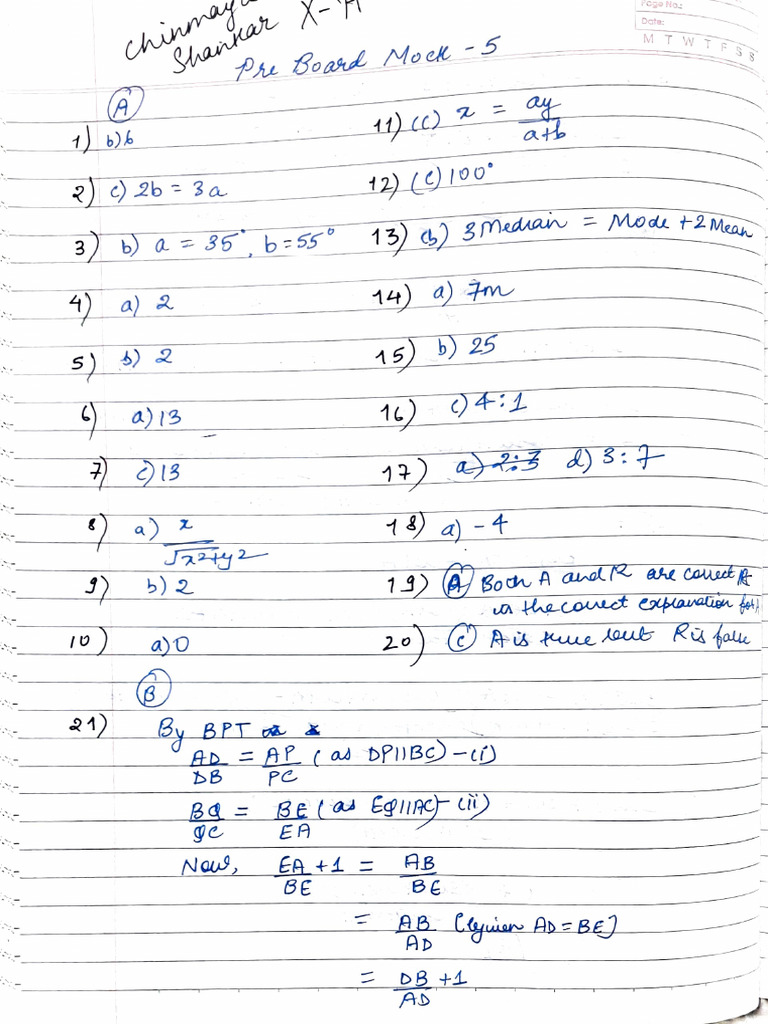 Page No.:
Date:
M T W T F S S
Shankar X-A
Pre Board Mock - 5
A
1) b) 6
2) c) 2b = 3a
3) b) a = 35°, b = 55°
4) a) 2
5) b) 2
6) a) 13
7) c) 13
8) a) x/√x²+y²
9) b) 2
10) a) 0
11) (c) x = ay/a+b
12) (c) 100°
13) (b) 3 Median = Mode + 2 Mean
14) a) 7m
15) b) 25
16) c) 4:1
17) a) 2:3 d) 3:7
18) a) -4
19) A Both A and R are correct R
is the correct explanation for A
20) c A is true but R is false
B
21) By BPT
AD/DB = AP/PC (as DP||BC) - (i)
BQ/QC = BE/EA (as EQ||AC) - (ii)
Now, EA/BE + 1 = AB/BE
= AB/AD [given AD = BE]
= DB/AD + 1